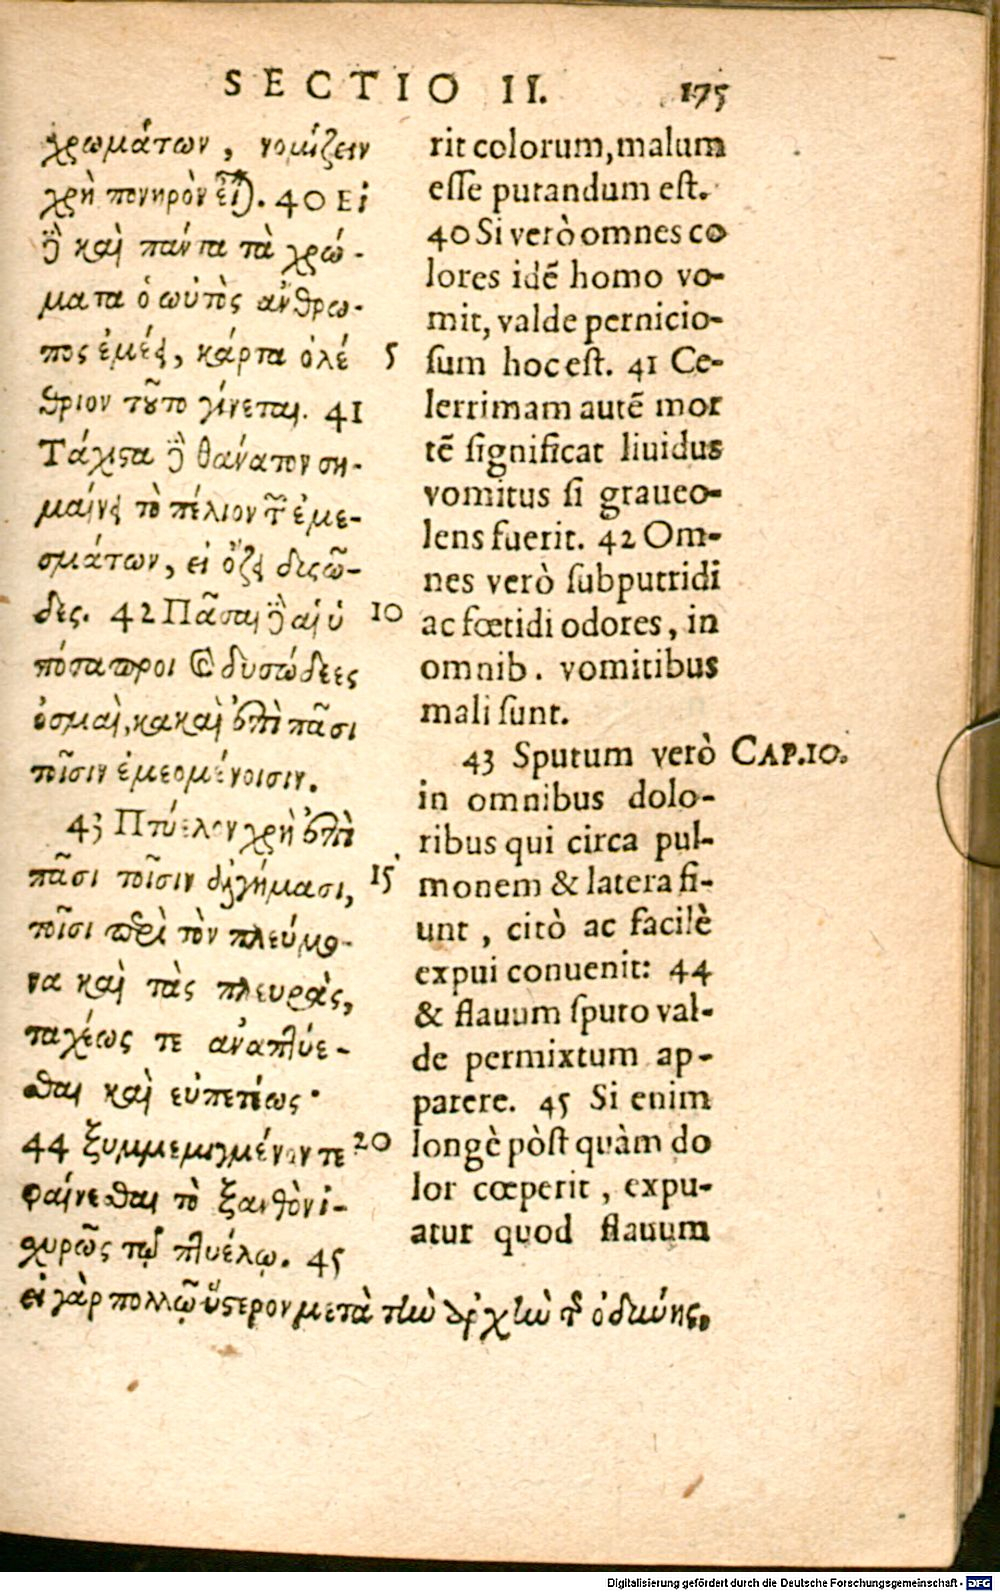 SECTIO II. 175
χρωμάτων, νομίζειν
χρὴ πονηρὸν εἶ). 40 Εἰ
δ̀ καὶ πάντα τὰ χρώ-
ματα ὁ ωὐτὸς ἄνθρω-
πος ἐμέει, κάρτα ὀλέ
5
θριον τοῦτο γίνεται. 41
Τάχιστα δ̀ θάνατον ση-
μαίνει τὸ πέλιον τ͂ ἐμε-
σμάτων, εἰ ὄζει δυσῶ-
δες. 42 Πᾶσαι δ̀ αἱ ὑ
10
πόσαπροι καὶ δυσώδεες
ὀσμαὶ, κακαὶ ἐπὶ πᾶσι
τοῖσιν ἐμεομένοισιν.
43 Πτύελον χρὴ ἐπὶ
πᾶσι τοῖσιν ἀλγήμασι,
15
τοῖσι περὶ τὸν πλεύμο-
να καὶ τὰς πλευρὰς,
ταχέως τε ἀναπτύε-
σθαι καὶ εὐπετέως·
44 ξυμμεμιγμένον τε
20
φαίνεσθαι τὸ ξανθὸν ἰ-
χυρῶς τῷ πτυέλῳ. 45
εἰ γὰρ πολλῷ ὕστερον μετὰ τὴν ἀρχὴν τ͂ ὀδύνης,
rit colorum, malum
esse putandum est.
40 Si verò omnes co
lores idẽ homo vo-
mit, valde pernicio-
sum hoc est. 41 Ce-
lerrimam autẽ mor
tẽ significat liuidus
vomitus si graueo-
lens fuerit. 42 Om-
nes verò subputridi
ac fœtidi odores, in
omnib. vomitibus
mali sunt.
43 Sputum verò CAP.10.
in omnibus dolo-
ribus qui circa pul-
monem & latera fi-
unt, citò ac facilè
expui conuenit: 44
& flauum sputo val-
de permixtum ap-
parere. 45 Si enim
longè pòst quàm do
lor cœperit, expu-
atur quod flauum
Digitalisierung gefördert durch die Deutsche Forschungsgemeinschaft - DFG